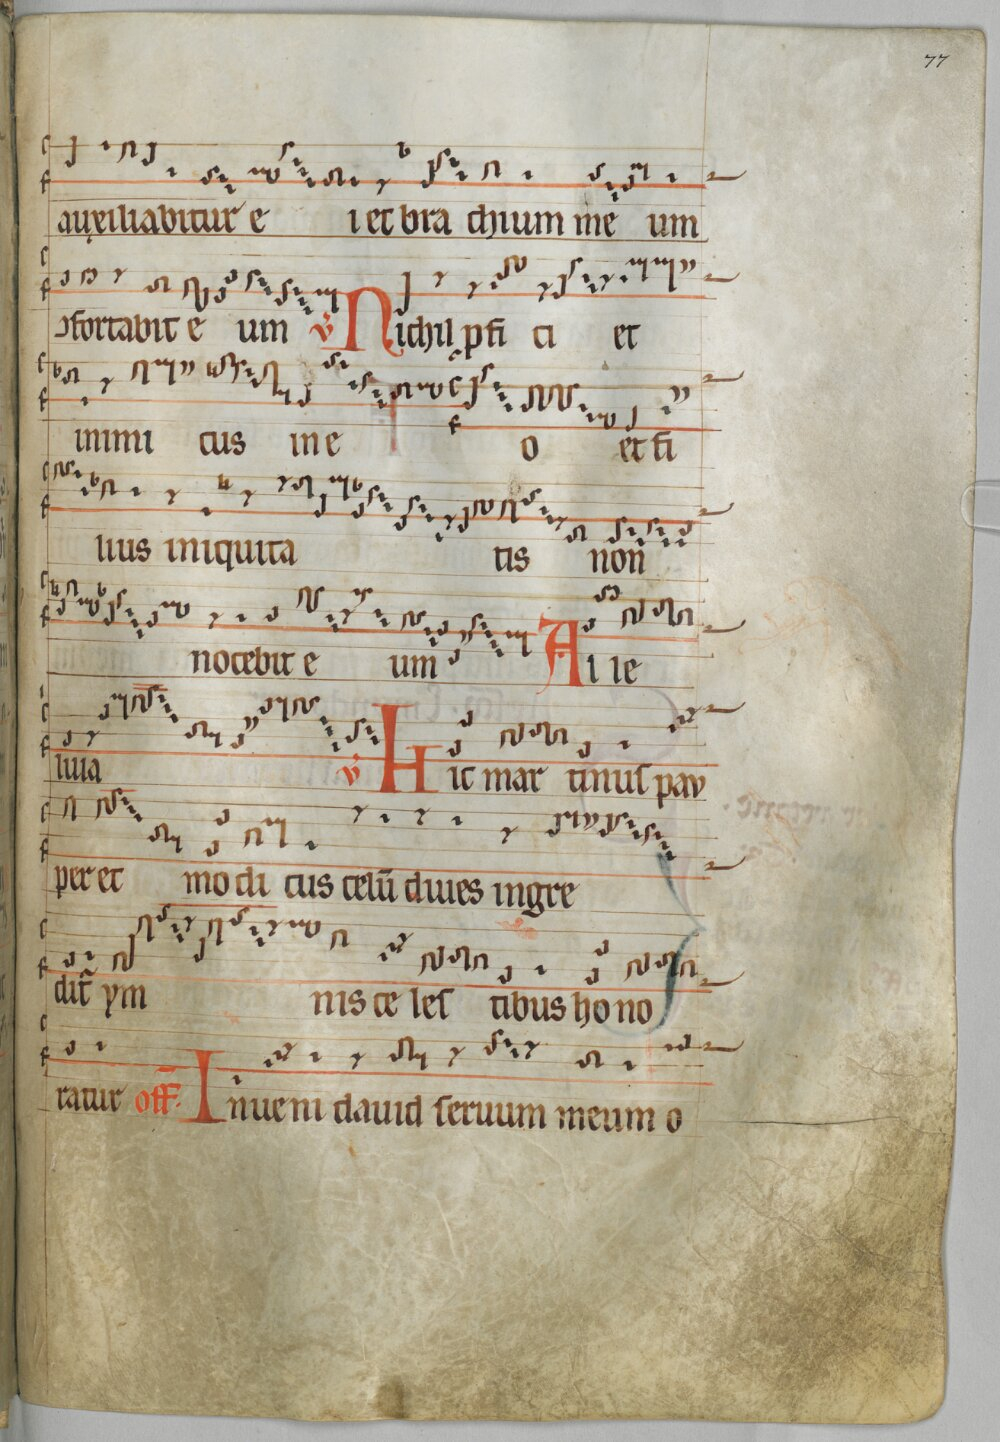 77
auxiliabitur e i et bra chium me um
ɔfortabit e um v Nichil ꝓfi ci et
inimi cus in e o et fi
lius iniquita tis non
nocebit e um Al le
luia v Hic mar tinus pau
per et mo di cus celū diues ingre
dit᷑ ym nis ce les tibus ho no
ratur off. Inueni dauid seruum meum o